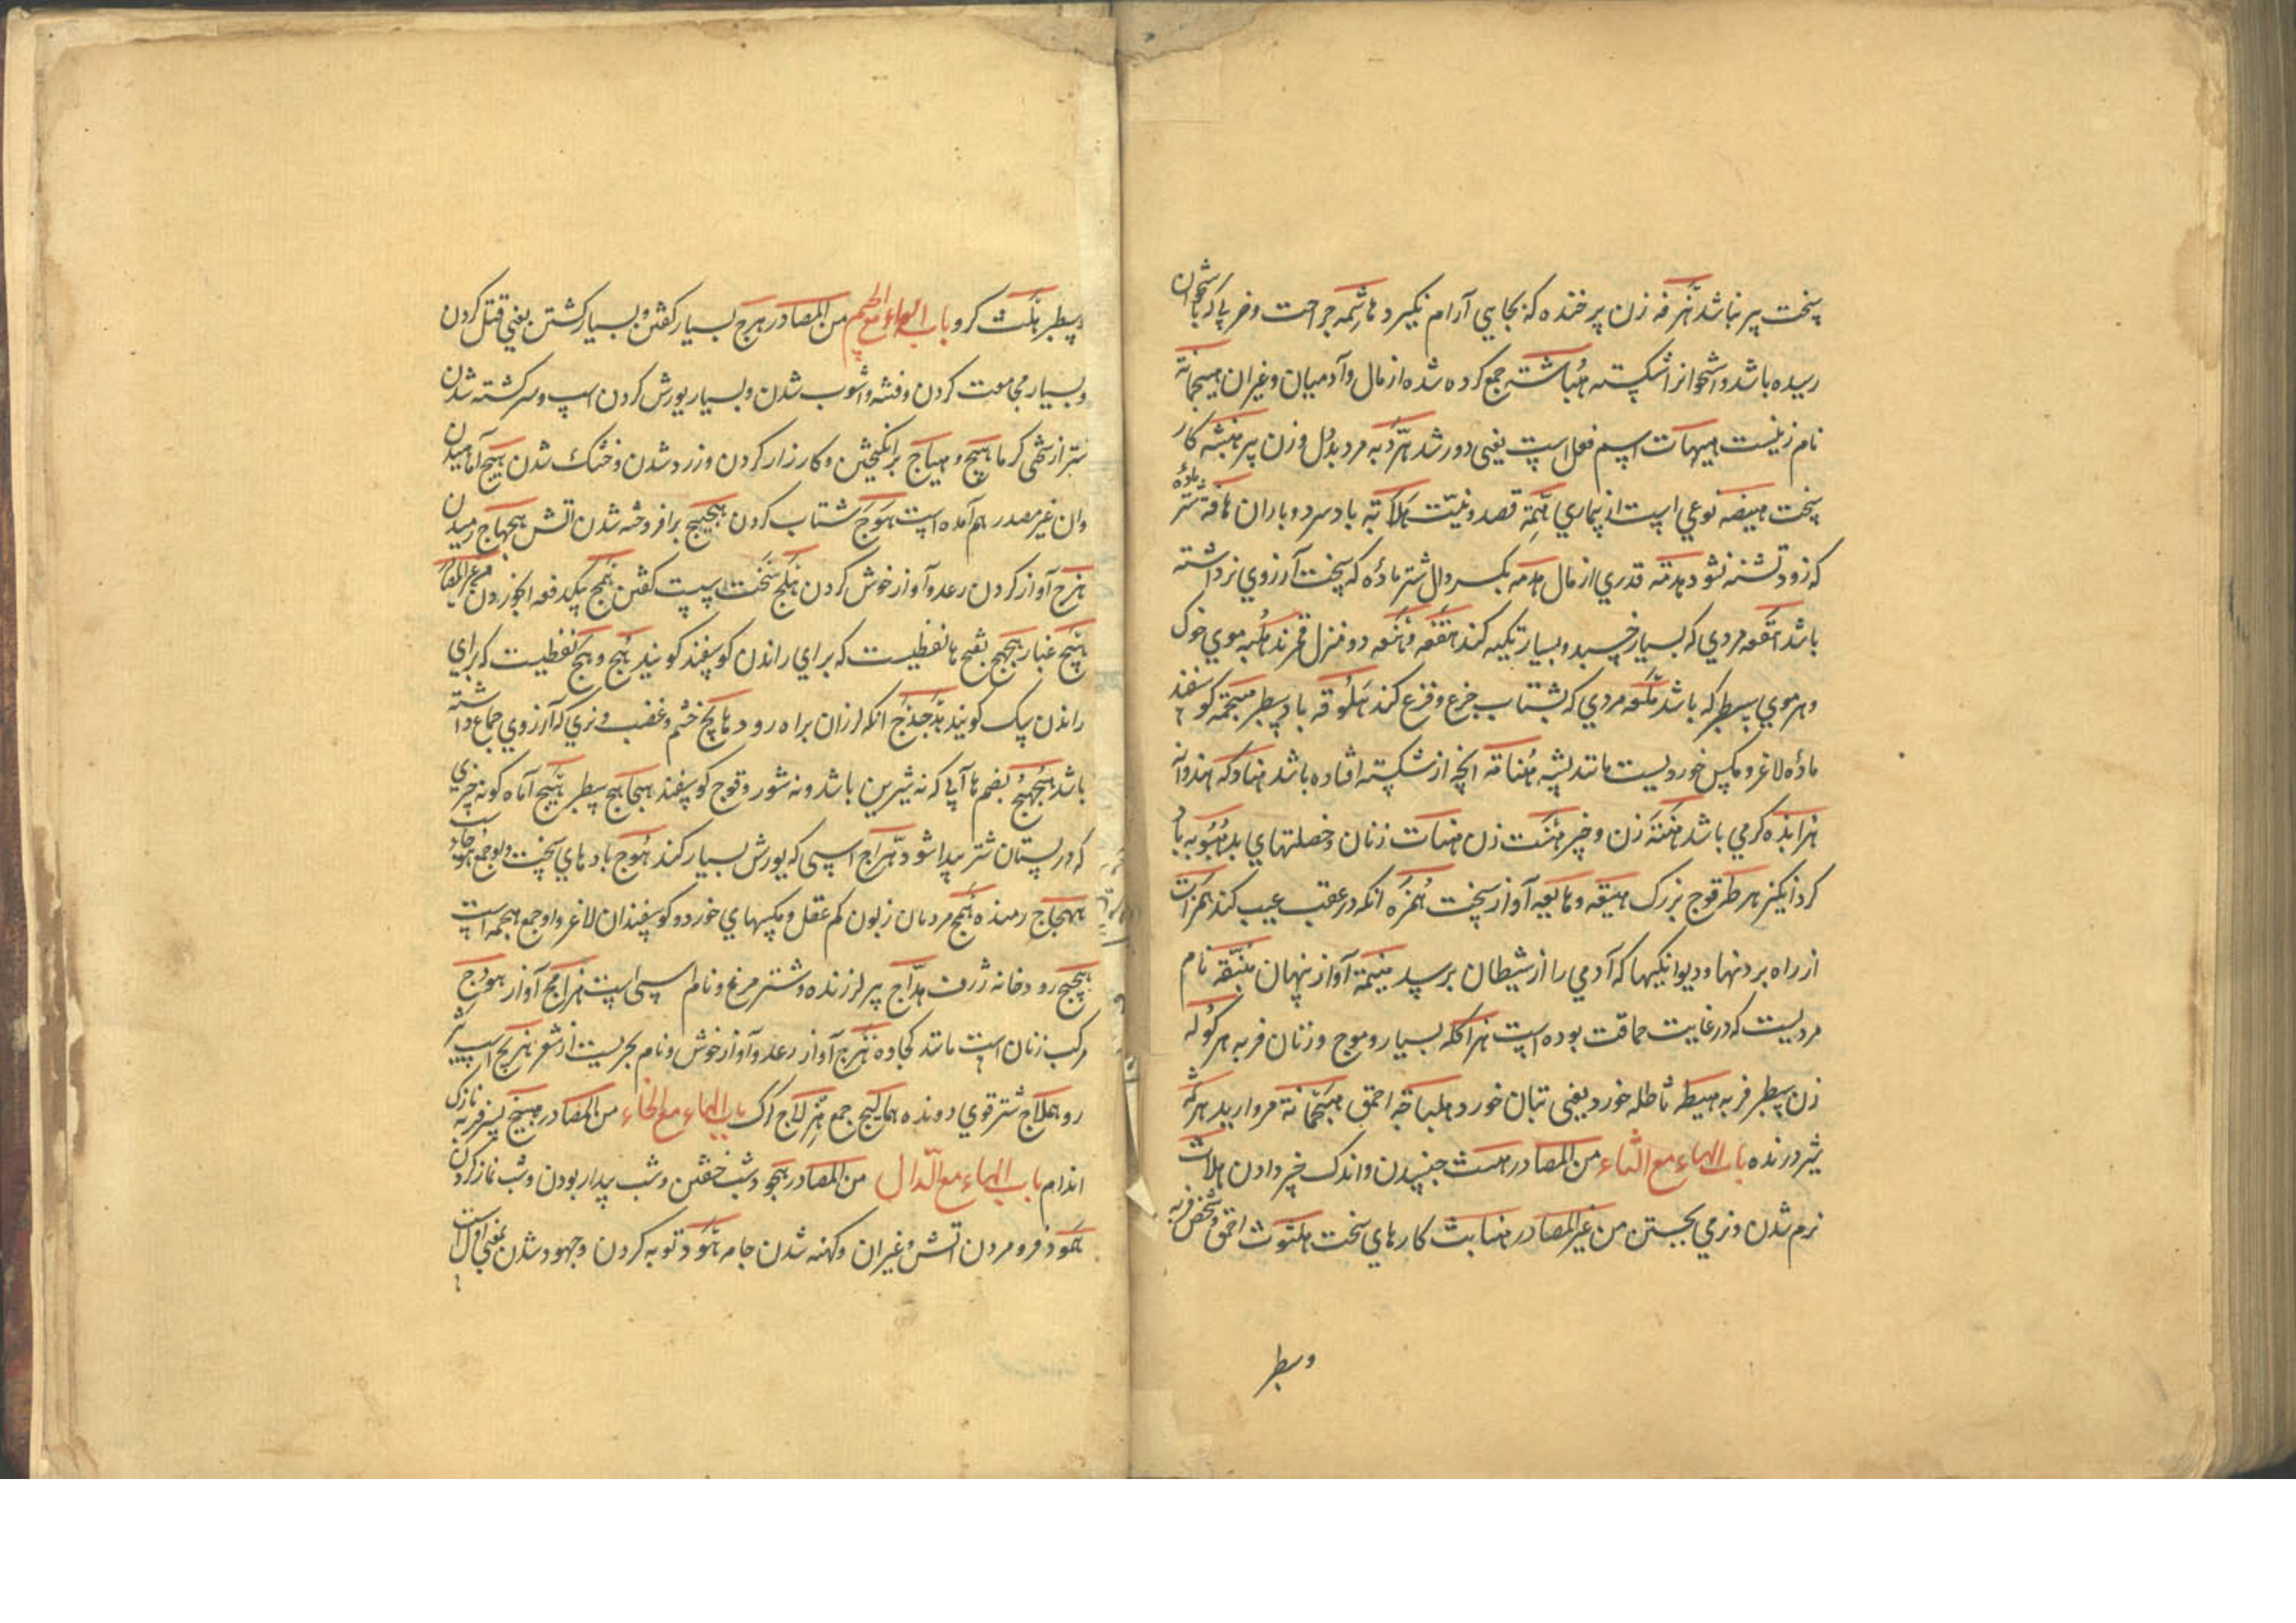 سخت پیر نباشد هزرفه زن پر خنده که بجایی آرام نگیرد هاشمه جراحت و ضربی که باستخوان
رسیده باشد و استخوانرا شکسته هباشته جمع کرده شده از مال و آدمیان و غیر ان هیجمانة
نام زنیست هیهات اسم فعل است یعنی دور شد هردبه مرد بددل و زن پیر هنبثه کار
سخت هیضه نوعی است از بیماری همة قصد و نیت هلابة باد سرد و باران هافة شتر ماده
که زود تشنه شود هدمة قدری از مال هدمه بکسر دال شتر ماده که سخت آرزوی نر داشته
باشد هقعه مردی که بسیار خسبد و بسیار تکیه کند هقعه و هنعه دو منزل قمرند هلبه موی خوک
و هر موی سطبر که باشد هلعه مردی که بشتاب جزع و فزع کند هلوقه باد سطبر هیجمه کوسفند
ماده لاغر و مکس خوردیست مانند پشه هناقه انچه از شکسته افتاده باشد هنادکه هندوانه
هرابذه کرمی باشد هنة زن و چیز هنت زن هنات زنان و خصلتهای بد هبوبه باد
کرد انکیز هرطه قوج بزرک هیقه و هایعه آواز سخت همزه انکه در عقب عیب کند همزات
از راه بردنها و دیوانکیها که آدمی را از شیطان برسد هینمة آواز پنهان هبنقه نام
مردیست که در غایت حماقت بوده است هراکله بسیار و موج و زنان فربه هرکوله
زن سطبر فربه هیطه تاطله خورد یعنی تبان خورد هلباجه احمق هیجمانة مروارید هرثمه
شیر درنده باب الهاء مع الثاء من المصادر هیث جنبیدن و اندک چیز دادن هلاث
نرم شدن و نرمی بجستن من غیر المصادر هنابث کارهای سخت هلبوث احمق و شخص فربه
و سطبر
و سطبر هلبث کرو باب الهاء مع الجیم من المصادر هرج بسیار کفتن و بسیار کشتن یعنی قتل کردن
و بسیار مجامعت کردن و فتنه و آشوب شدن و بسیار یورش کردن اسپ و سرکشته شدن
شتر از سختی کرما هیج و هیاج برانکیختن و کارزار کردن و زرد شدن و خشک شدن هبیج آماسیدن
وان غیر مصدر هم آمده است هوج شتاب کردن هجیج برافروخته شدن اتش هجهاج رمیدن
هزج آواز کردن رعد و آواز خوش کردن هلج سخت سست کفتن همج یکدفعه آب خوردن من غیر المصادر
هبج غبار هجهج بفتح ها لفظیست که برای راندن کوسفند کویند هج و هج لفظیست که برای
راندن سک کویند هدجدج انکه لرزان براه رود هایج خشم و غضب و نری که آرزوی جماع داشته
باشد هجهج بضم ها آبی که نه شیرین باشد و نه شور و قوچ کوسفند هجاهج سطبر هبیج آماه کونه چیزی
که در پستان شتر پیدا شود هراج اسپی که یورش بسیار کند هوج بادهای سخت و او جمع هوجاست
هجهاج رمنده همج مردمان زبون کم عقل و مکسهای خورد و کوسفندان لاغر و او جمع همجه است
هجیج رودخانه ژرف هداج پیر لرزنده و شترمرغ و نام اسپی است هزامج آواز هودج
مرکب زنان است مانند کجاوه هزج آواز رعد و آواز خوش و نام بحریست از شعر هزیج اسب تیز
رو هملاج شتر قوی دونده همالیج جمع هزلاج کرک باب الهاء مع الخاء من المصادر هبیخ پسر فربه نازک
اندام باب الهاء مع الدال من المصادر هجود شب خفتن و شب بیدار بودن و شب نماز کردن
همود فرو مردن اتش و غیر ان و کهنه شدن جامه هود توبه کردن و جهود شدن بمعنی اول است